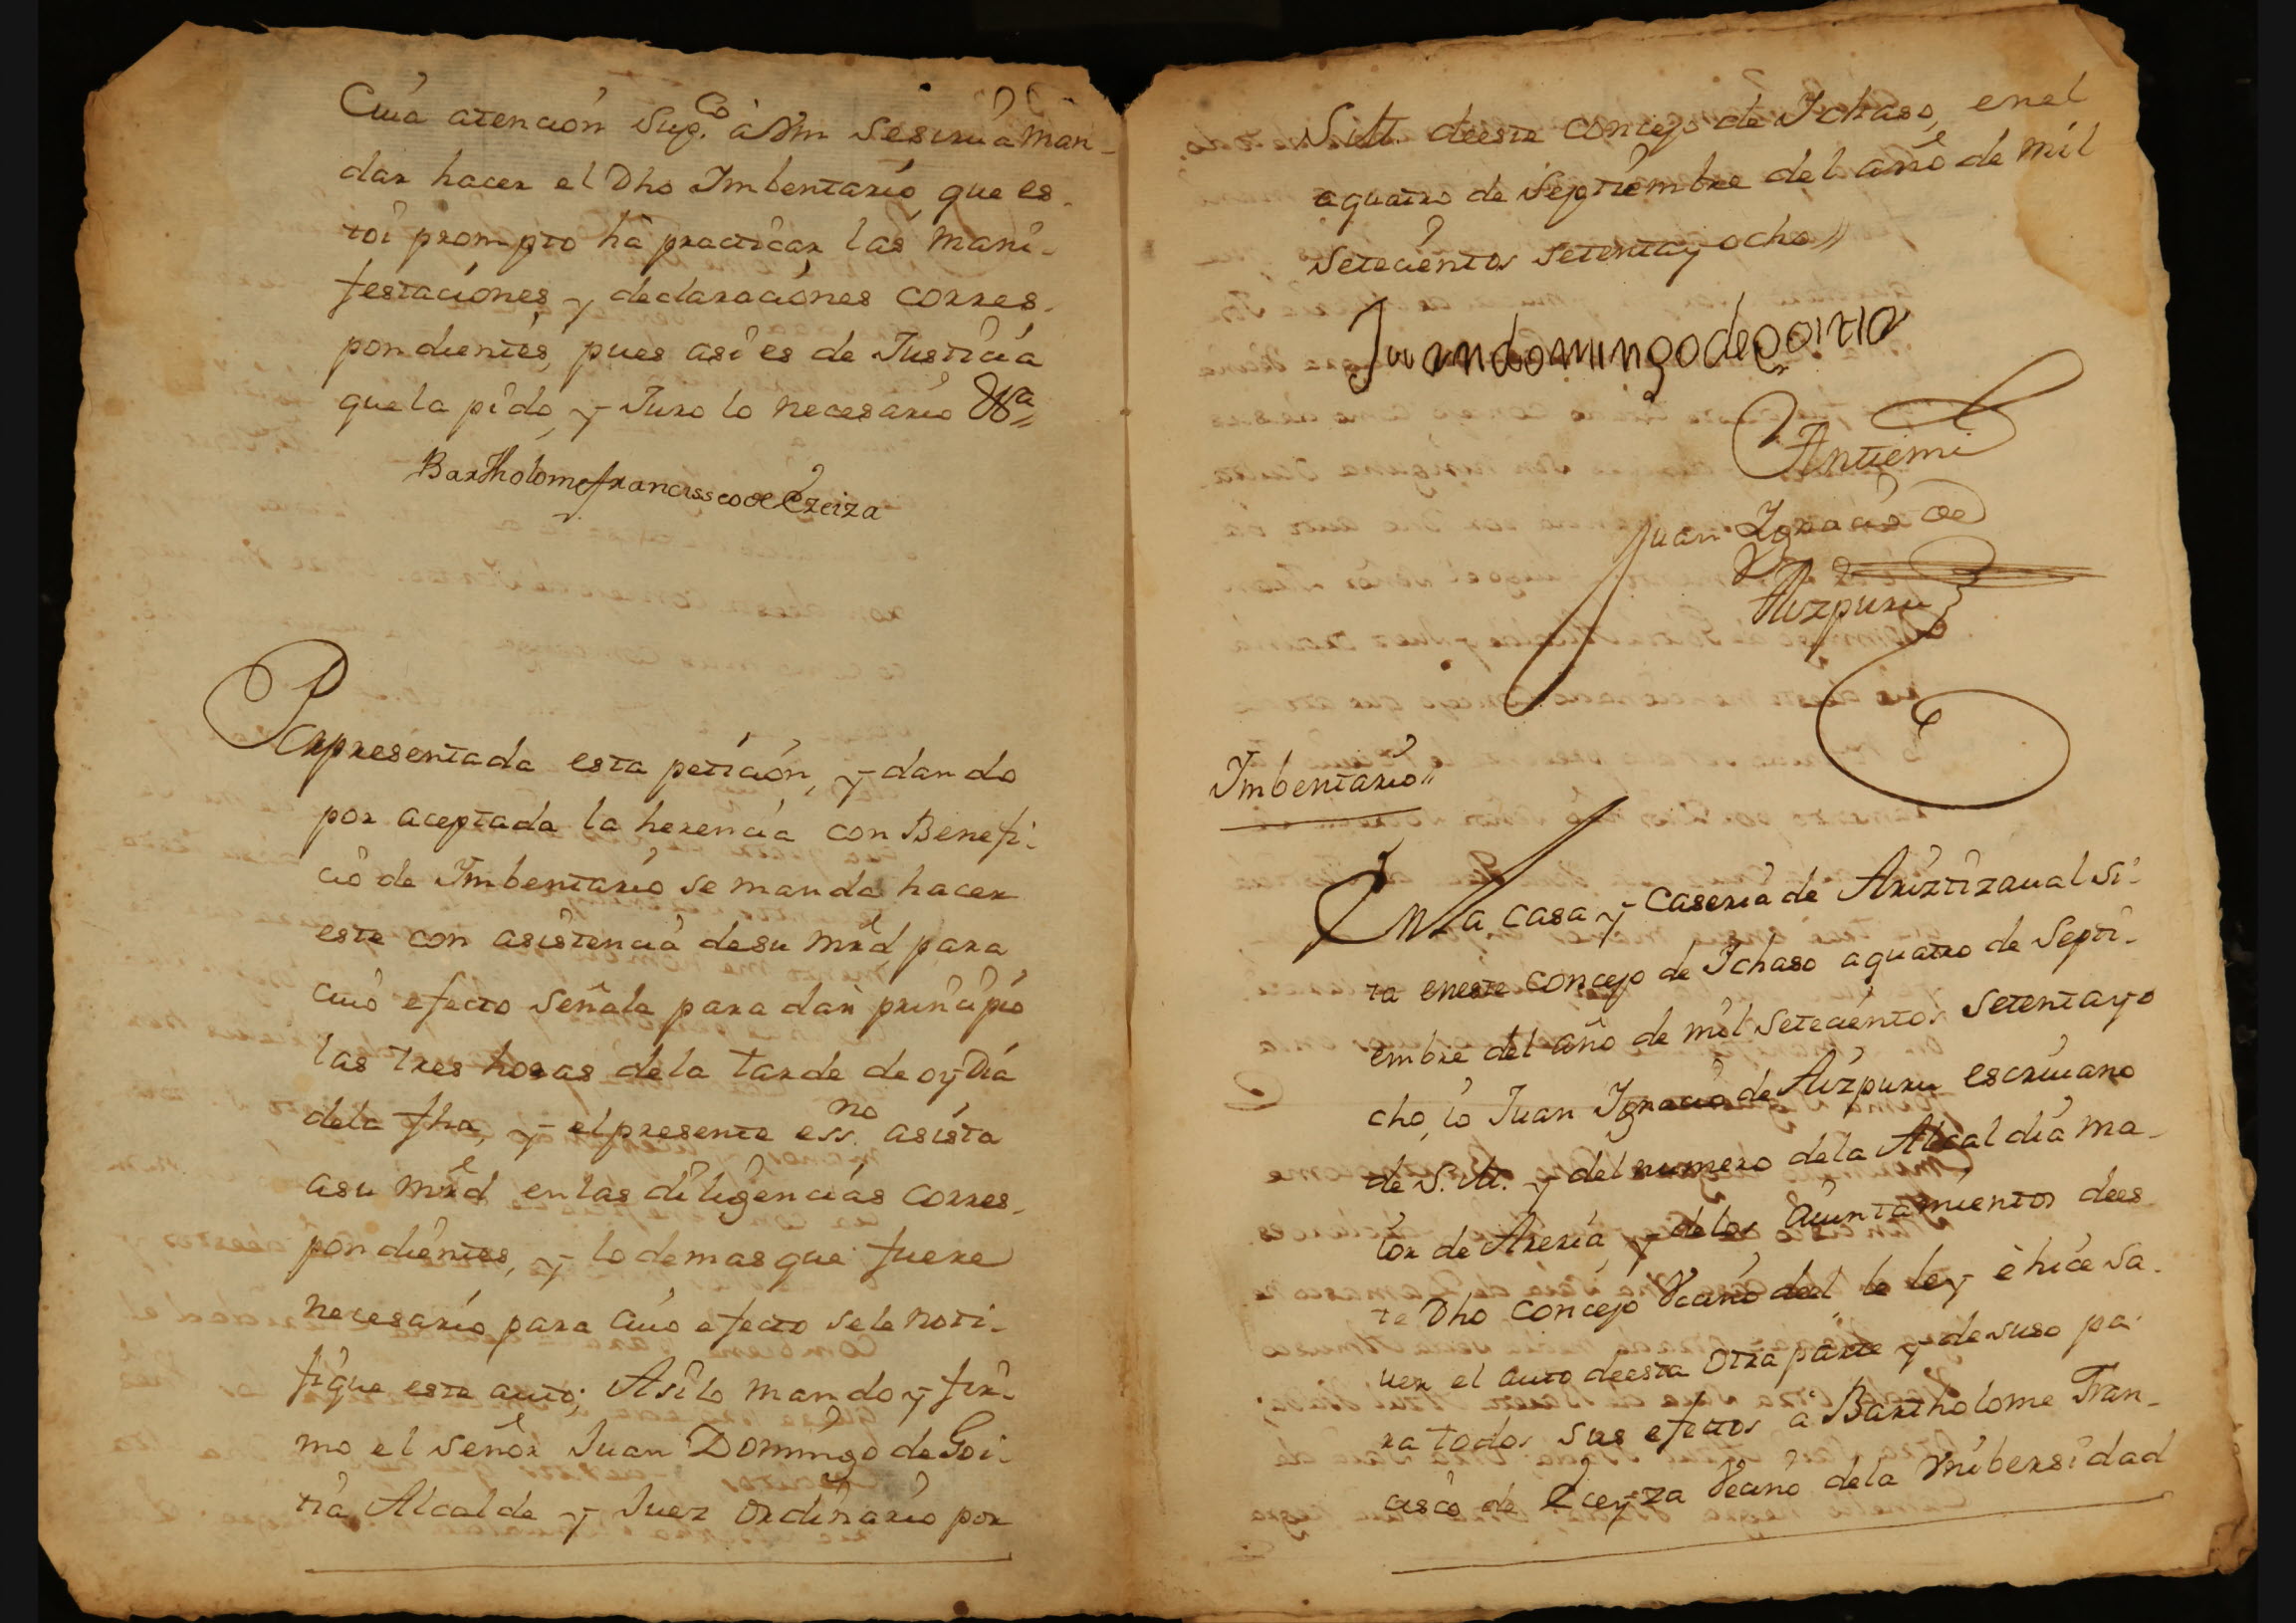 Cuia atención Sup.co à Vm se sirua man-
dar hacer el Dho Imbentario, que es-
toi prompto hà practicar las mani-
festaciones y declaraciones corres-
pondientes, pues asi es de Justicia
que la pido, y Juro lo necesario &a
Bartholome francissco de Ezeiza
Por presentada esta petición, y dando
por aceptada la herencia con Benefi-
cio de Imbentario se manda hacer
este con asistencia de su mrd para
cuio efecto señala para dar principio
las tres horas de la tarde de oy Dia
de la fha, y el presente ess.no asista
a su mrd en las diligencias corres-
pondientes, y lo demas que fuere
necesario para cuio efecto se le noti-
fique este auto; Asi lo mando y fir-
mo el señor Juan Domingo de Goi-
tia Alcalde y Juez ordinario por
S.M. de este concejo de Ichaso, en el
a quatro de Septiembre del año de mil
setecientos setenta y ocho
Juan domingo de goitia
Antemi
Juan Ignacio de
Aizpuru
Imbentario
En la casa y caseria de Ariztizaual si-
ta en este concejo de Ichaso a quatro de Septi-
embre del año de mil setecientos setenta y o
cho, io Juan Ignacio de Aizpuru escriuano
de S.M. y del numero de la Alcaldia ma-
ior de Areria, y de los Aiuntamientos de es
te Dho concejo Vecino del le ley è hice sa-
uer el auto de esta otra parte y de suso pa-
ra todos sus efectos a Bartholome Fran-
cisco de Eceyza Vecino de la Vnibersidad